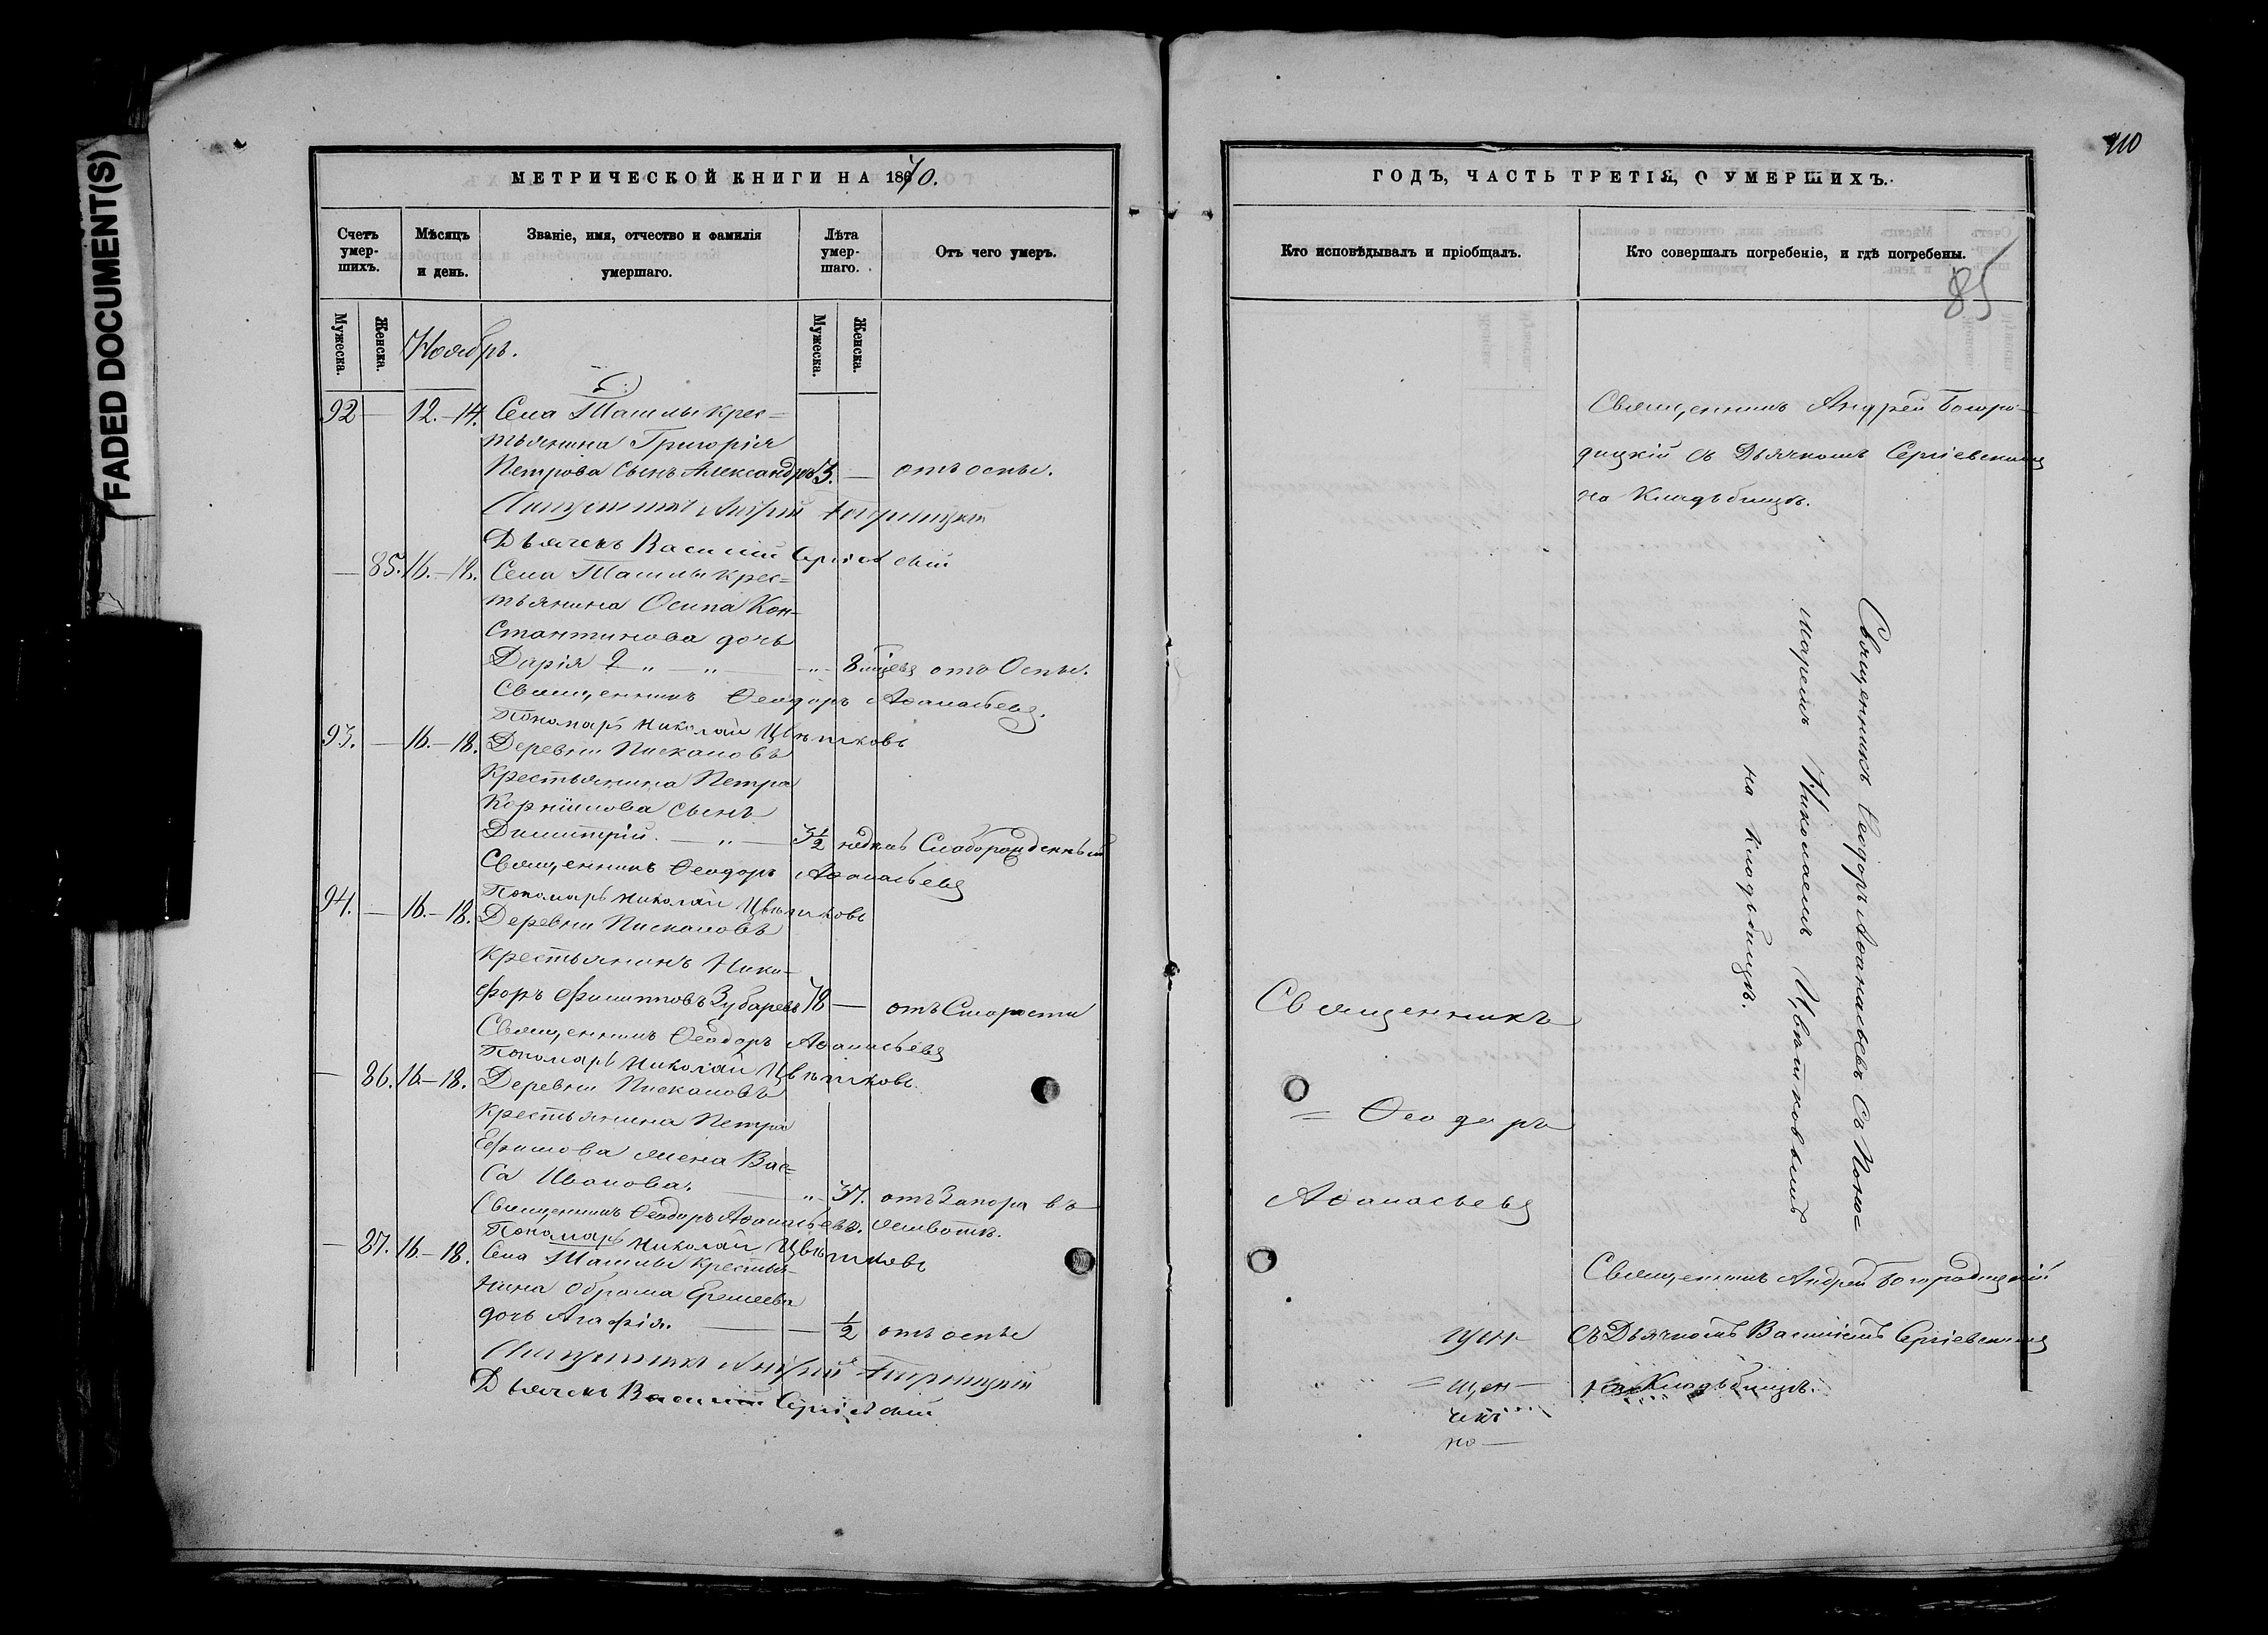 FADED DOCUMENT(S)
МЕТРИЧЕСКОЙ КНИГИ НА 1870.
Счетъ умер-шихъ.
Мѣсяцъ и день.
Званіе, имя, отчество и фамилія умершаго.
Лѣта умер-шаго.
Отъ чего умеръ.
Мужеска.
Женска.
Ноябрь.
Мужеска.
Женска.
92 — 12.—14. Села Ташлы крес=
тьянина Григорія
Петрова сынъ Александръ 3. — отъ оспы.
Священникъ Андрей Богородицкій
Дьячекъ Василій Сергіевскій
— 85. 16.—18. Села Ташлы крес=
тьянина Осипа Кон-
стантинова дочь
Дарія — „ — „ — 8 мцевъ отъ Оспы.
Священникъ Ѳеодоръ Аѳанасьевъ.
Пономарь Николай Цвѣтковъ
93. — 16.—18. Деревни Пискаловъ
крестьянина Петра
Корнилова сынъ
Димитрій. — „ — 3½ недѣль Слаборожденный
Священникъ Ѳеодоръ Аѳанасьевъ
Пономарь Николай Цвѣтковъ
94. — 16.—18. Деревни Пискаловъ
крестьянинъ Ники-
форъ Филиповъ Зубаревъ 78 — отъ Старости
Священникъ Ѳеодоръ Аѳанасьевъ
Пономарь Николай Цвѣтковъ.
— 86. 16.—18. Деревни Пискаловъ
крестьянина Петра
Ефимова жена Вас=
са Иванова. — „ — 37. отъ Запора въ
Священникъ Ѳеодоръ Аѳанасьевъ. животѣ.
Пономарь Николай Цвѣтковъ
— 87. 16.—18. Села Ташлы крестья-
нина Обрама Еремеева
дочь Агафія. — — ½ отъ оспы
Священникъ Андрей Богородицкій
Дьячекъ Василій Сергіевскій
110
ГОДЪ, ЧАСТЬ ТРЕТІЯ, О УМЕРШИХЪ.
Кто исповѣдывалъ и пріобщалъ.
Кто совершалъ погребеніе, и гдѣ погребены.
85
Священникъ Андрей Богоро-
дицкій съ Дьячкомъ Сергіевскимъ
на Кладъбищѣ.
Священникъ Ѳеодоръ Аѳанасьевъ съ Поно=
маремъ Николаемъ Цвѣтковымъ
на кладъбищѣ.
Священникъ
= Ѳеодоръ
Аѳанасьевъ
Священникъ Андрей Богородицкій
съ Дьячкомъ Василіемъ Сергіевскимъ
на Кладъбищѣ.